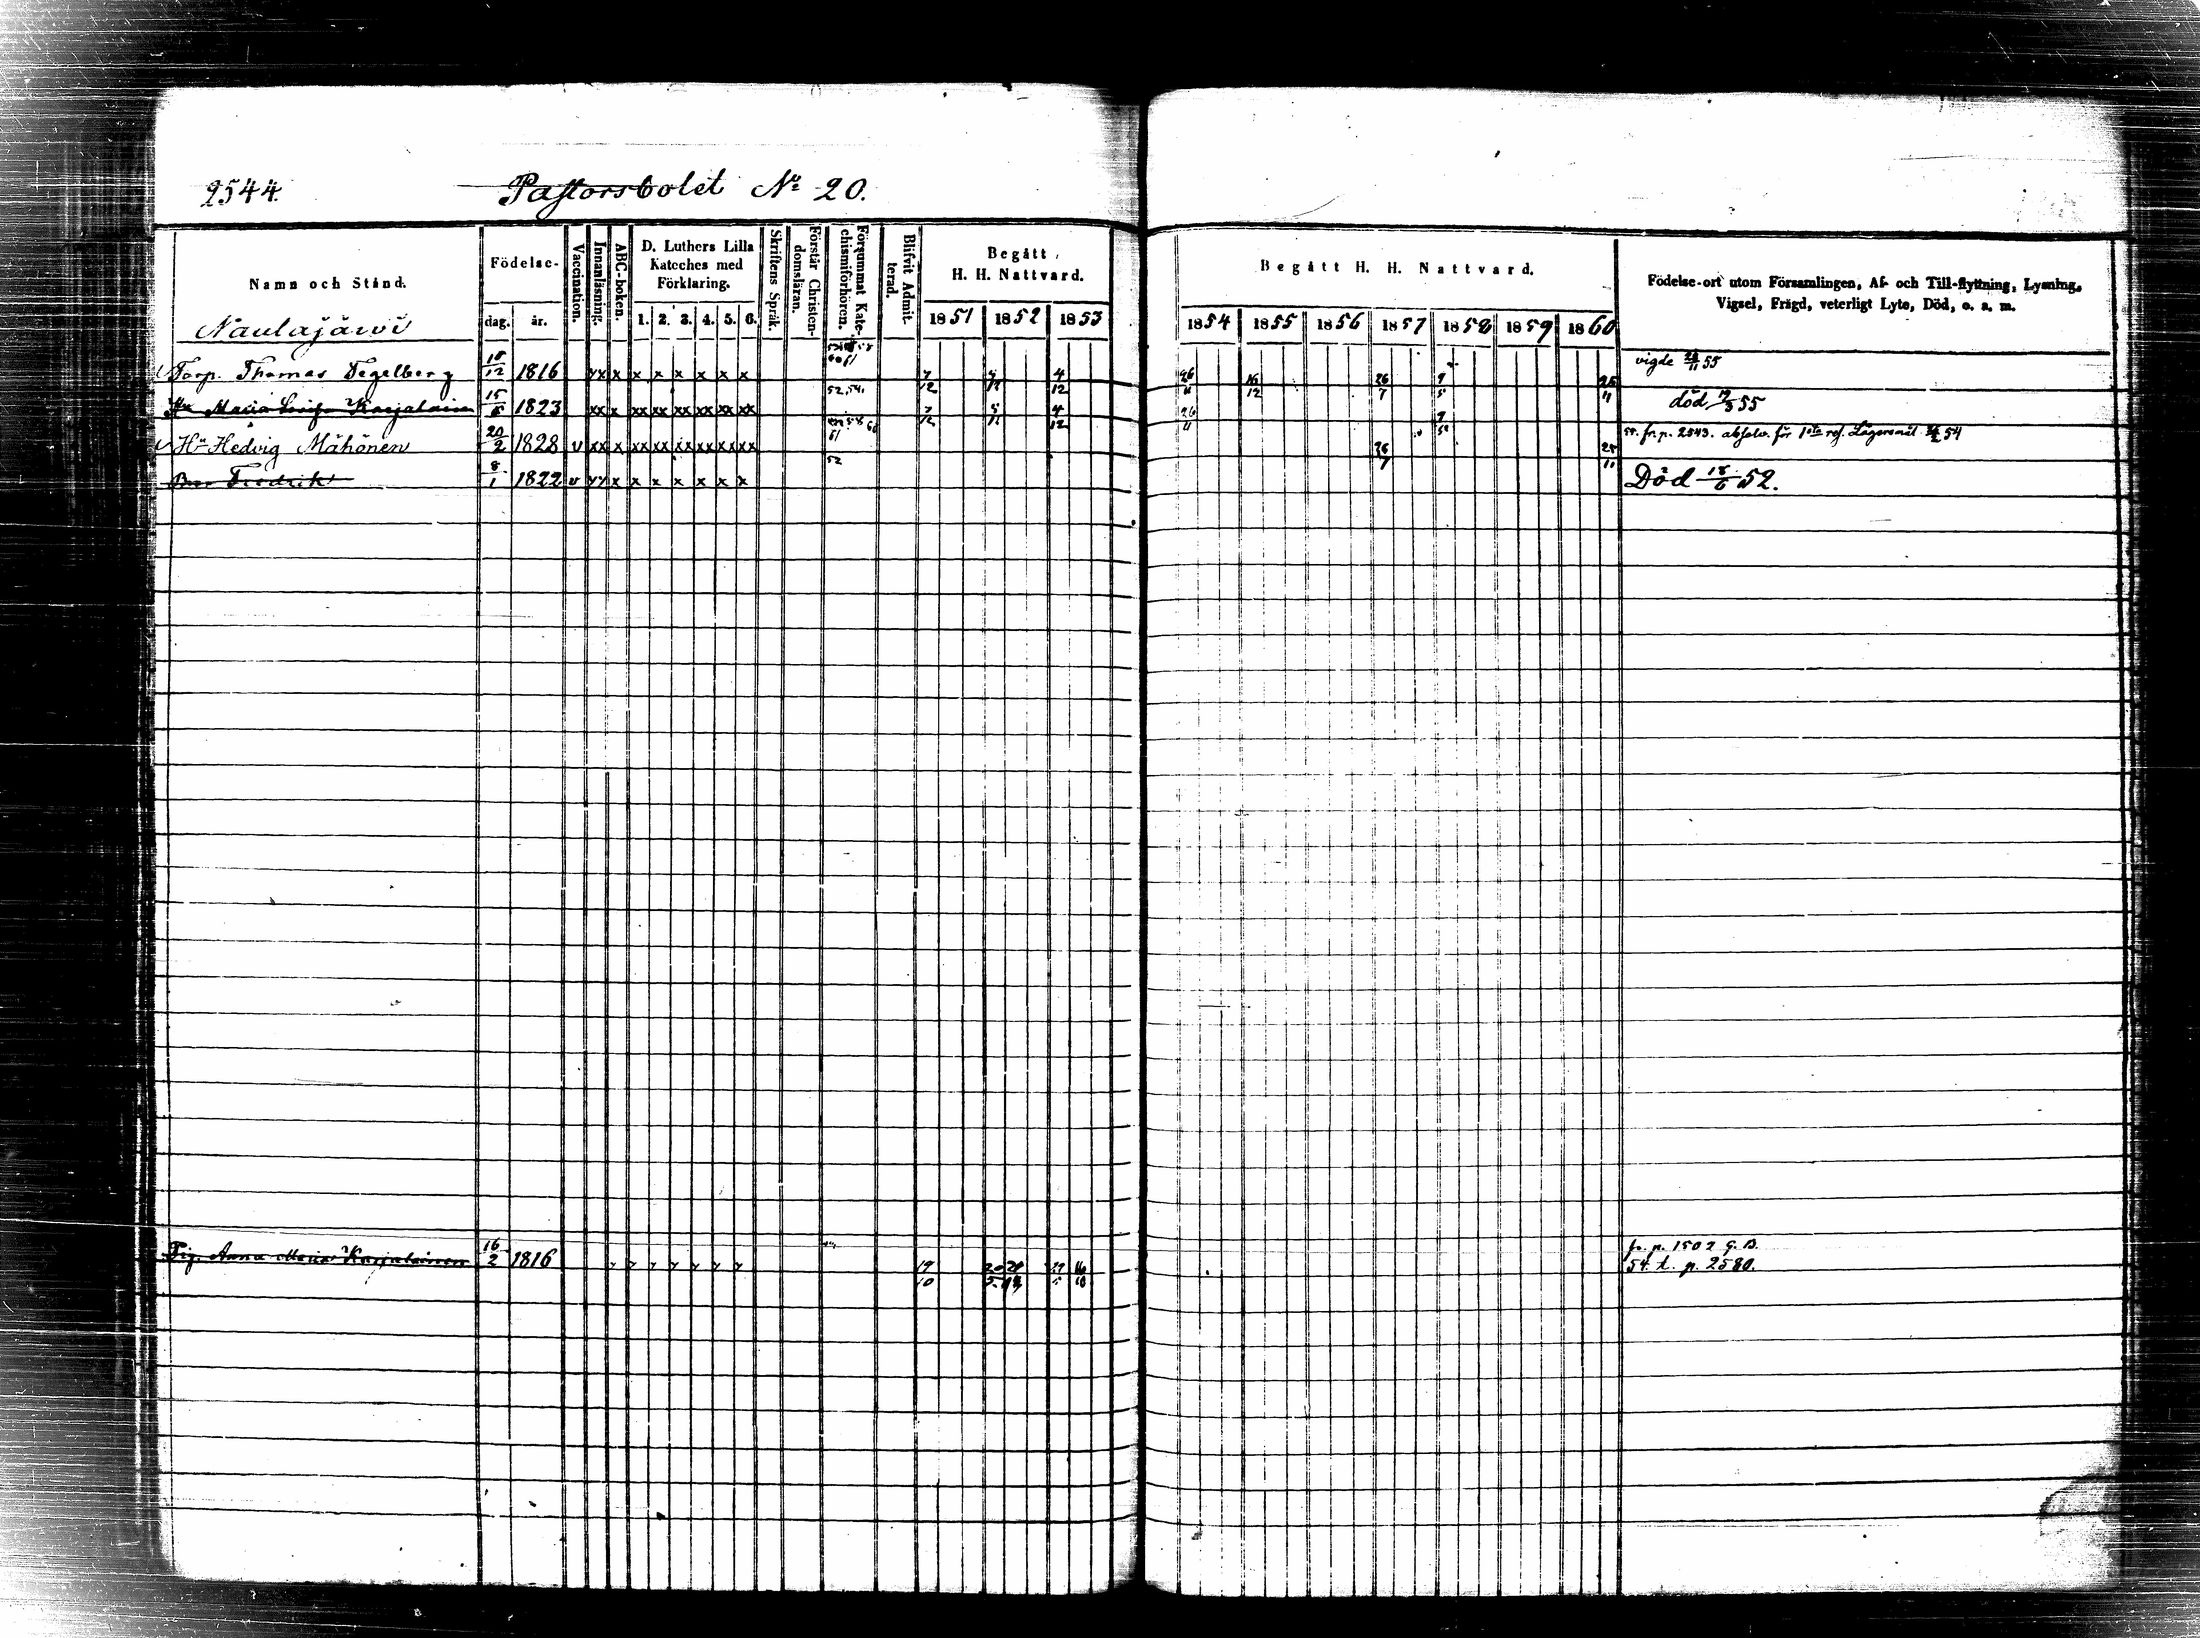 2544.
Pastorsbolet No 20.
Namn och Stånd.
Födelse-
dag. år.
Vaccination.
Innanläsning.
ABC-boken.
D. Luthers Lilla
Kateches med
Förklaring.
1. 2. 3. 4. 5. 6.
Skriftens Språk.
Förstår Christen-
domsläran.
Försummat Kate-
chismiförhören.
Blifvit Admit-
terad.
Begått
H. H. Nattvard.
1851 1852 1853
Begått H. H. Nattvard.
1854 1855 1856 1857 1858 1859 1860
Födelse-ort utom Församlingen, Af- och Till-flyttning, Lysning,
Vigsel, Frägd, veterligt Lyte, Död, o. s. m.
Naulajärvi
Torp. Thomas Tegelberg 18/12 1816 xx x x x x x x x 7/12 5/12 4/12 26/11 16/12 26/7 9/5 25/11 vigde 26/11 55
Maria Karjalain 15/5 1823 xx x xx xx xx xx xx xx 52,54. 7/12 5/12 4/12 26/11 död 12/3 55
Hu Hedvig Mähönen 20/2 1828 v xx x xx xx xx xx xx xx 26/7 25/11 54. fr. p. 2543. absolv. för 1sta Lägersmål 54
Fredrik 8/1 1822 v xx x x x x x x x 52 Död 18/6 52.
Pig. Anna Maria Karjalainen 16/2 1816 19/10 fr. p. 1502 G. B.
54. t. p. 2580.